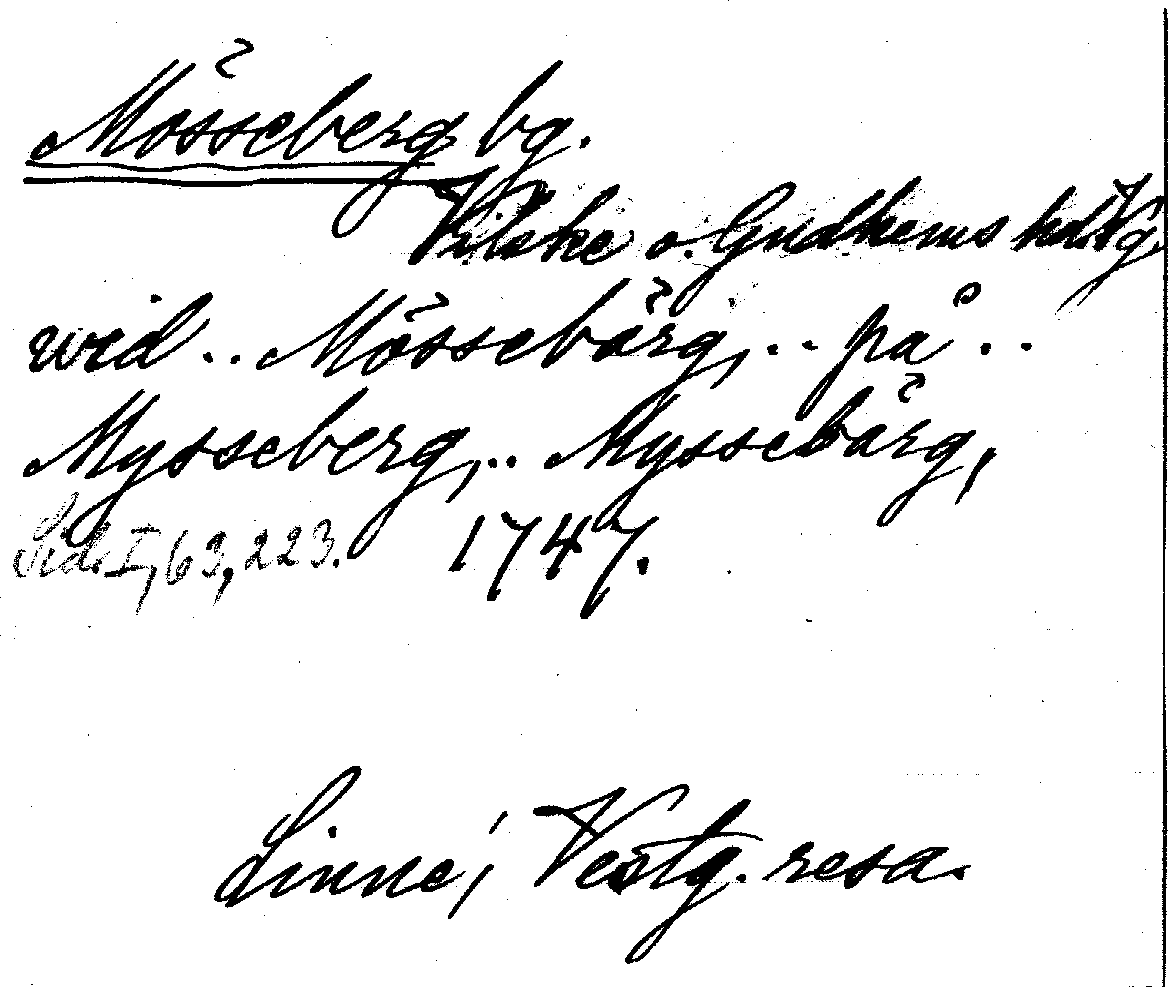 Mösseberg bg.
Vilske o. Gudhems hd. Vg.
wid .. Mössebärg, .. på ..
Mysseberg, .. Myssebärg,
Sid. I, 63, 223. 1747.
Linné, Vestg. resa.